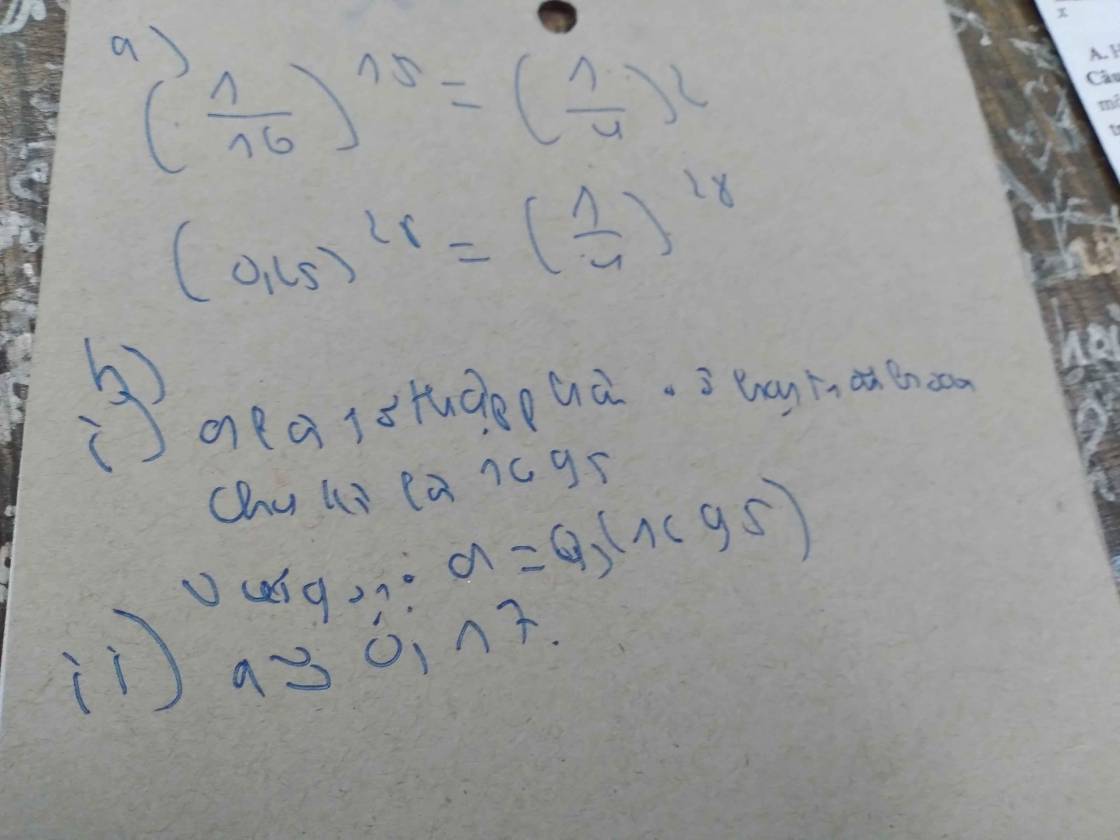 a)
(1/16)^15 = (1/4)2
(0,25)^28 = (1/4)^28
b)
i) a là 1 số thập phân
chu kì là 1695
a = 0,(1695)
ii) a ≈ 0,17.
x
A. H
Câu